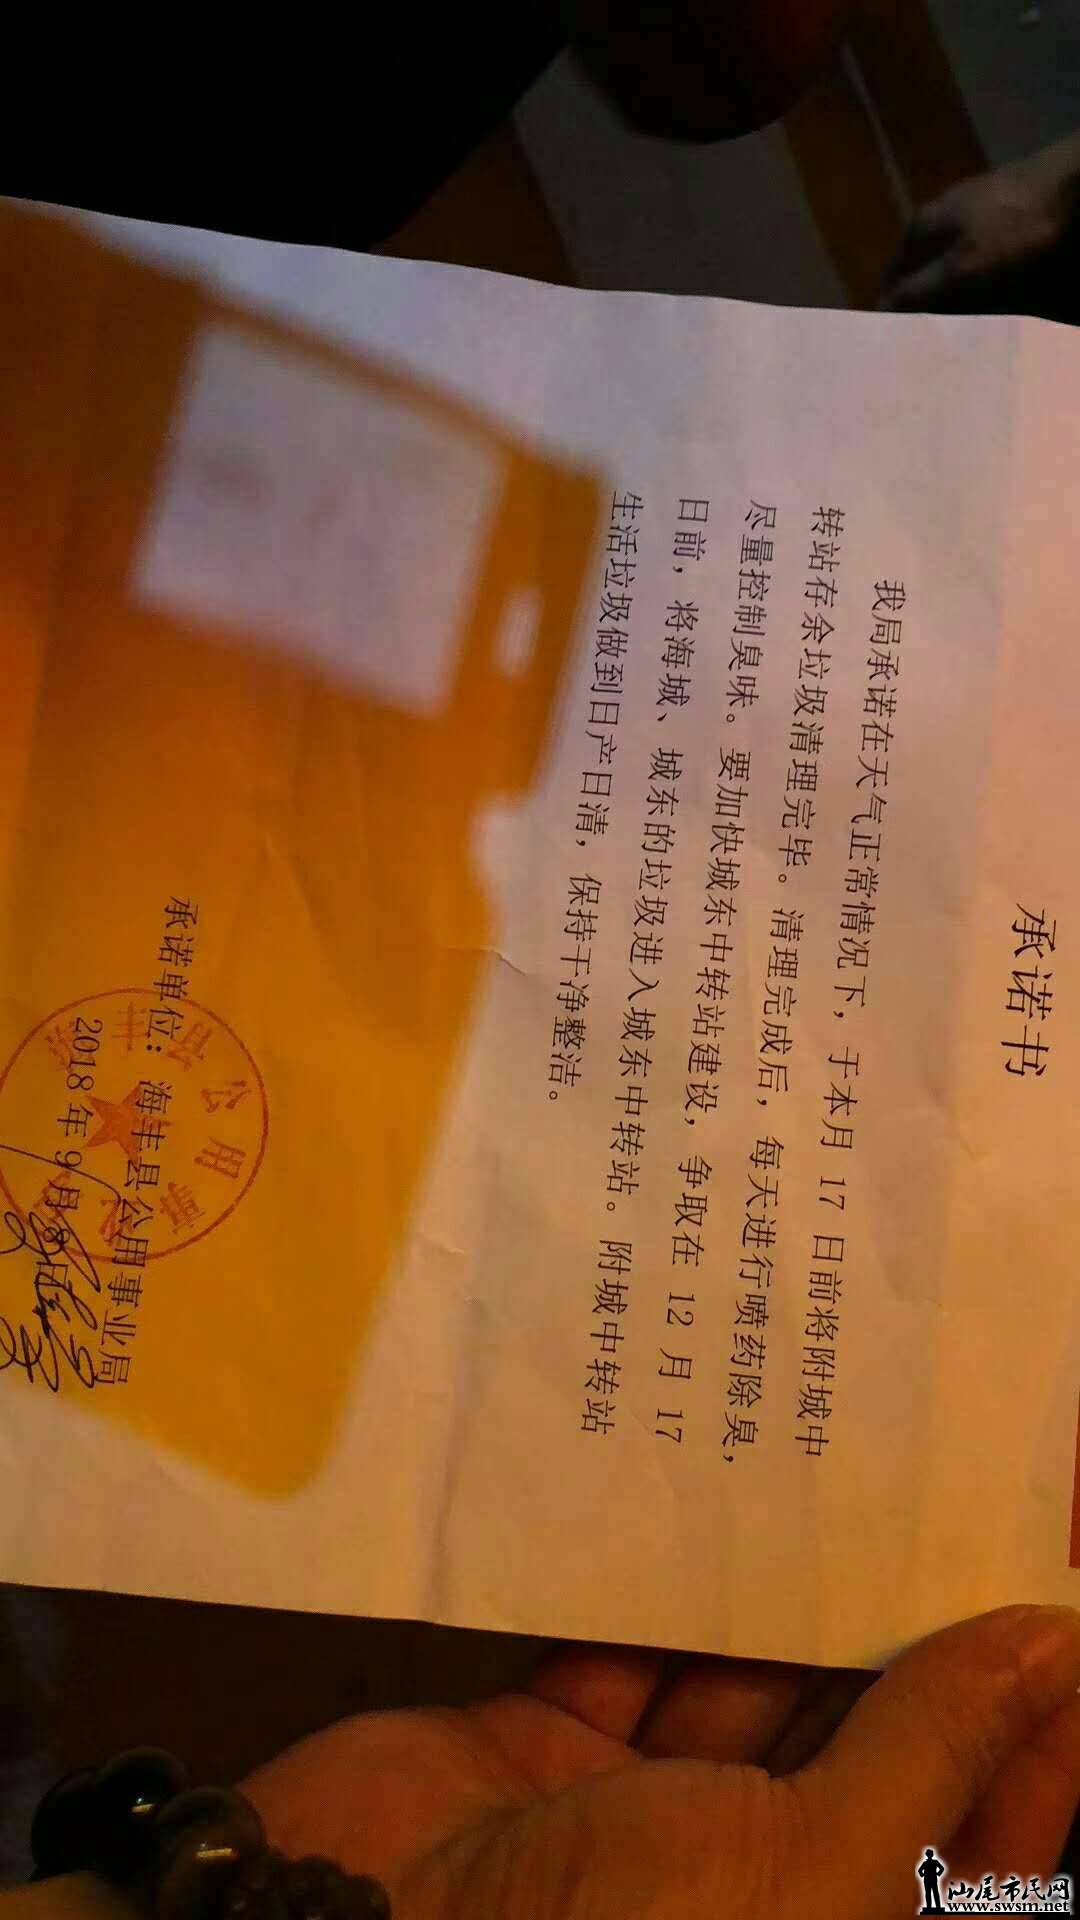 承诺书
我局承诺在天气正常情况下，于本月 17 日前将附城中
转站存余垃圾清理完毕。清理完成后，每天进行喷药除臭，
尽量控制臭味。要加快城东中转站建设，争取在 12 月 17
日前，将海城、城东的垃圾进入城东中转站。附城中转站
生活垃圾做到日产日清，保持干净整洁。
承诺单位：海丰县公用事业局
2018 年 9 月 8 日
丰县公用事
汕尾市民网
www.swsm.net